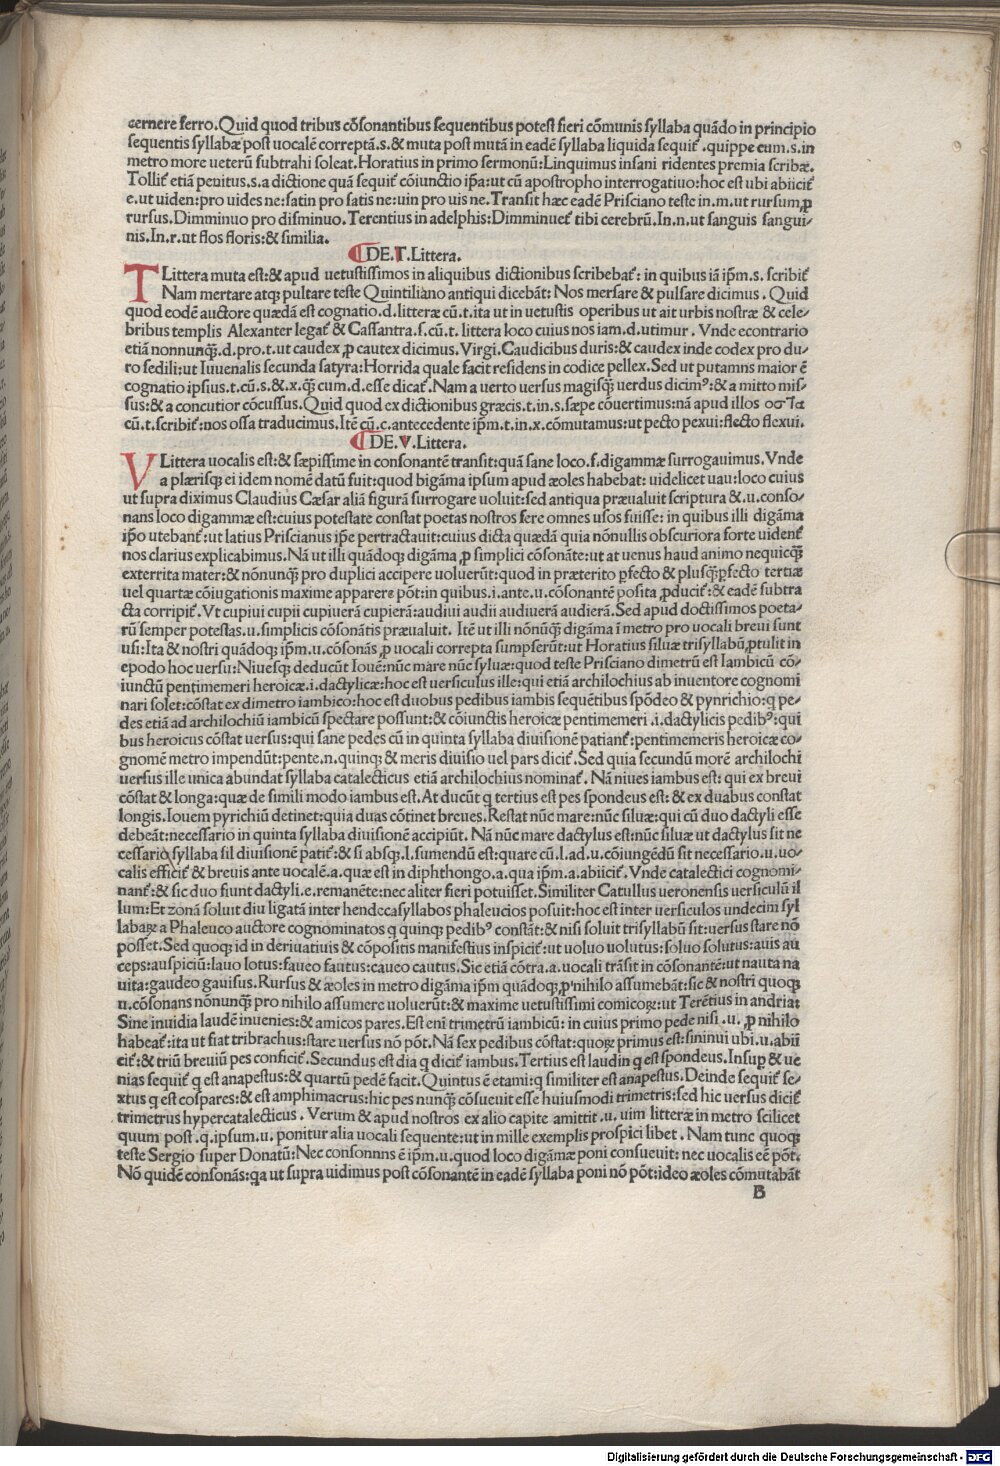 cernere ferro.Quid quod tribus cõsonantibus sequentibus potest fieri cõmunis syllaba quãdo in principio
sequentis syllabæ post uocalẽ correptã.s.& muta post mutã in eadẽ syllaba liquida sequit̃.quippe cum.s.in
metro more ueterũ subtrahi soleat.Horatius in primo sermonũ:Linquimus insani ridentes premia scribæ.
Tollit̃ etiã penitus.s.a dictione quã sequit̃ cõiunctio ip̃a:ut cũ apostropho interrogatiuo:hoc est ubi abiicit̃
e.ut uiden:pro uides ne:satin pro satis ne:uin pro uis ne.Transit hæc eadẽ Prisciano teste in.m.ut rursum,ꝓ
rursus.Dimminuo pro disminuo.Terentius in adelphis:Dimminuet̃ tibi cerebrũ.In.n.ut sanguis sangui-
nis.In.r.ut flos floris:& similia.
¶DE.T.Littera.
T Littera muta est:& apud uetustissimos in aliquibus dictionibus scribebat̃: in quibus iã ip̃m.s. scribit̃
Nam mertare atqꝫ pultare teste Quintiliano antiqui dicebãt: Nos mersare & pulsare dicimus. Quid
quod eodẽ auctore quædã est cognatio.d.litteræ cũ.t.ita ut in uetustis operibus ut ait urbis nostræ & cele-
bribus templis Alexanter legat̃ & Cassantra.s.cũ.t. littera loco cuius nos iam.d.utimur. Vnde econtrario
etiã nonnunqꝫ̃.d.pro.t.ut caudex ꝓ cautex dicimus.Virgi.Caudicibus duris:& caudex inde codex pro du-
ro sedili:ut Iuuenalis secunda satyra:Horrida quale facit residens in codice pellex.Sed ut putamns maior ẽ
cognatio ipsius.t.cũ.s.& .x.qꝫ̃ cum.d.esse dicat̃.Nam a uerto uersus magisqꝫ̃ uerdus dicimꝰ:& a mitto mis-
sus:& a concutior cõcussus.Quid quod ex dictionibus græcis.t.in.s.sæpe cõuertimus:nã apud illos οστα
cũ.t.scribit̃:nos ossa traducimus.Itẽ cũ.c.antecedente ip̃m.t.in.x.cõmutamus:ut pecto pexui:flecto flexui.
¶DE.V.Littera.
V Littera uocalis est:& sæpissime in consonantẽ transit:quã sane loco.f.digammæ surrogauimus.Vnde
a plærisqꝫ ei idem nomẽ datũ fuit:quod bigãma ipsum apud æoles habebat: uidelicet uau:loco cuius
ut supra diximus Claudius Cæsar aliã figurã surrogare uoluit:sed antiqua præualuit scriptura & .u.conso-
nans loco digammæ est:cuius potestate constat poetas nostros fere omnes usos fuisse: in quibus illi digãma
ip̃o utebant̃:ut latius Priscianus ip̃e pertractauit:cuius dicta quædã quia nõnullis obscuriora forte uident̃
nos clarius explicabimus.Nã ut illi quãdoqꝫ digãma,ꝓ simplici cõsonãte:ut at uenus haud animo nequicqꝫ̃
exterrita mater:& nõnunqꝫ̃ pro duplici accipere uoluerũt:quod in præterito ꝑfecto & plusqꝫ̃ꝑfecto tertiæ
uel quartæ cõiugationis maxime apparere põt:in quibus.i.ante.u.cõsonantẽ posita ꝓducit̃:& eadẽ subtra
cta corripit̃.Vt cupiui cupii cupiuerã cupierã:audiui audii audiuerã audierã.Sed apud doctissimos poeta-
rũ semper potestas.u.simplicis cõsonãtis præualuit. Itẽ ut illi nõnũqꝫ̃ digãma ĩ metro pro uocali breui sunt
usi:Ita & nostri quãdoqꝫ ip̃m.u.cõsonãs,ꝓ uocali correpta sumpserũt:ut Horatius siluæ trisyllabũ ꝓtulit in
epodo hoc uersu:Niuesqꝫ deducũt Iouẽ:nũc mare nũc syluæ:quod teste Prisciano dimetrũ est Iambicũ cõ-
iunctũ pentimemeri heroicæ.i.dactylicæ:hoc est uersiculus ille:qui etiã archilochius ab inuentore cognomi
nari solet:cõstat ex dimetro iambico:hoc est duobus pedibus iambis sequẽtibus spõdeo & pynrichio:q pe-
des etiã ad archilochiũ iambicũ spectare possunt:& cõiunctis heroicæ pentimemeri .i.dactylicis pedibꝰ:qui
bus heroicus cõstat uersus:qui sane pedes cũ in quinta syllaba diuisionẽ patiant̃:pentimemeris heroicæ co-
gnomẽ metro impendũt:pente.n.quinqꝫ & meris diuisio uel pars dicit̃.Sed quia secundũ morẽ archilochi
uersus ille unica abundat syllaba catalecticus etiã archilochius nominat̃. Nã niues iambus est: qui ex breui
cõstat & longa:quæ de simili modo iambus est.At ducũt q tertius est pes spondeus est: & ex duabus constat
longis.Iouem pyrichiũ detinet:quia duas cõtinet breues.Restat nũc mare:nũc siluæ:qui cũ duo dactyli esse
debeãt:necessario in quinta syllaba diuisionẽ accipiũt. Nã nũc mare dactylus est:nũc siluæ ut dactylus sit ne
cessario syllaba sil diuisionẽ patit̃:& si absqꝫ.l.sumendũ est:quare cũ.l.ad.u.cõiungẽdũ sit necessario.u.uo-
calis efficit̃ & breuis ante uocalẽ.a.quæ est in diphthongo.a.qua ip̃m.a.abiicit̃. Vnde catalectici cognomi-
nant̃:& sic duo fiunt dactyli.e.remanẽte:nec aliter fieri potuisset.Similiter Catullus ueronensis uersiculũ il
lum:Et zonã soluit diu ligatã inter hendecasyllabos phaleucios posuit:hoc est inter uersiculos undecim syl
labaꝝ a Phaleuco auctore cognominatos q quinqꝫ pedibꝰ constãt:& nisi soluit trisyllabũ sit:uersus stare nõ
posset.Sed quoqꝫ id in deriuatiuis & cõpositis manifestius inspicit̃:ut uoluo uolutus:soluo solutus:auis au
ceps:auspiciũ:lauo lotus:faueo fautus:caueo cautus.Sic etiã cõtra.a.uocali trãsit in cõsonantẽ:ut nauta na
uita:gaudeo gauisus.Rursus & æoles in metro digãma ip̃m quãdoqꝫ,ꝓ nihilo assumebãt:sic & nostri quoqꝫ
u.cõsonans nõnunqꝫ̃ pro nihilo assumere uoluerũt:& maxime uetustissimi comicoꝝ:ut Terẽtius in andria:
Sine inuidia laudẽ inuenies:& amicos pares.Est enĩ trimetrũ iambicũ: in cuius primo pede nisi .u. ,ꝓ nihilo
habeat̃:ita ut fiat tribrachus:stare uersus nõ põt.Nã sex pedibus cõstat:quoꝝ primus est:sininui ubi.u.abii
cit̃:& triũ breuiũ pes conficit̃.Secundus est dia q dicit̃ iambus.Tertius est laudin q est spondeus.Insuꝑ & ue
nias sequit̃ q est anapestus:& quartũ pedẽ facit.Quintus ẽ etami:q similiter est anapestus.Deinde sequit̃ se-
xtus q est cospares:& est amphimacrus:hic pes nunqꝫ̃ cõsueuit esse huiusmodi trimetris:sed hic uersus dicit̃
trimetrus hypercatalecticus. Verum & apud nostros ex alio capite amittit .u. uim litteræ in metro scilicet
quum post .q.ipsum.u. ponitur alia uocali sequente:ut in mille exemplis prospici libet. Nam tunc quoqꝫ
teste Sergio super Donatũ:Nec consonnns ẽ ip̃m.u.quod loco digãmæ poni consueuit: nec uocalis eẽ põt.
Nõ quidẽ consonãs:qa ut supra uidimus post cõsonantẽ in eadẽ syllaba poni nõ põt:ideo æoles cõmutabãt
B
Digitalisierung gefördert durch die Deutsche Forschungsgemeinschaft - DFG